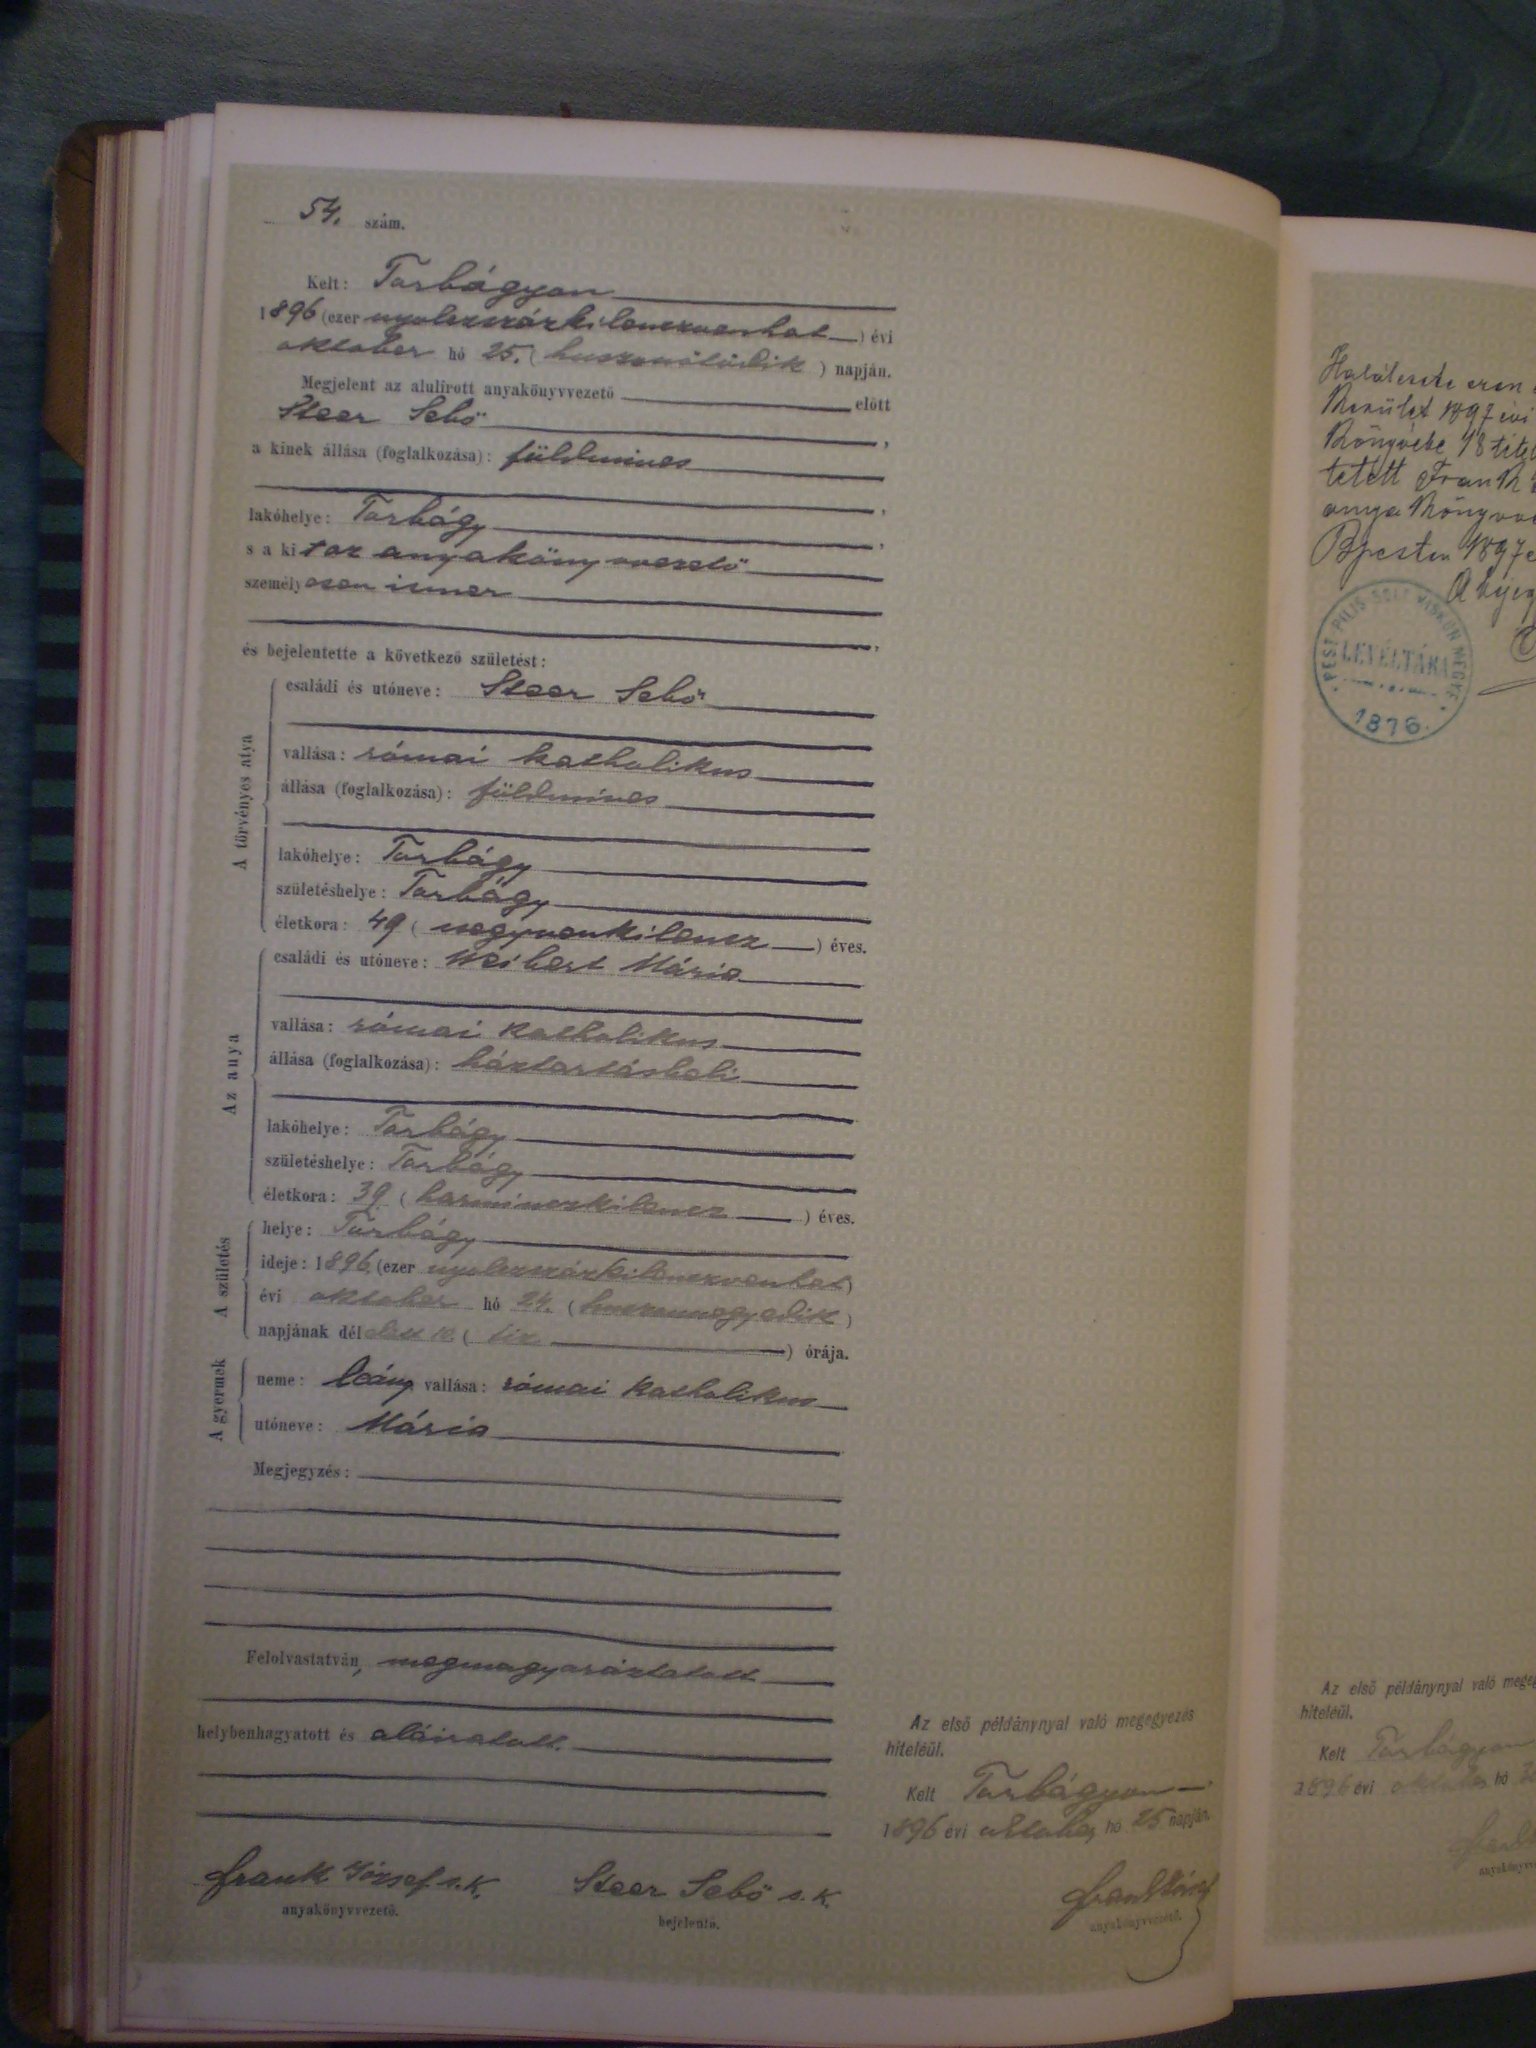 54. szám.
Kelt: Torbágyon
1896 (ezer nyolczszázkilenczvenhat) évi
oktober hó 25. (huszonötödik) napján.
Megjelent az alulírott anyakönyvvezető előtt
Steer Sebő,
a kinek állása (foglalkozása): földmíves
,
lakóhelye: Torbágy,
s a ki anyakönyvvezető
személyesen ismer
,
és bejelentette a következő születést:
A törvényes atya
családi és utóneve: Steer Sebő
vallása: római katholikus
állása (foglalkozása): földmíves
lakóhelye: Torbágy
születéshelye: Torbágy
életkora: 49 (negyvenkilencz) éves.
Az anya
családi és utóneve: Weibert Mária
vallása: római katholikus
állása (foglalkozása): háztartásbeli
lakóhelye: Torbágy
születéshelye: Torbágy
életkora: 39 (harminczkilencz) éves.
A születés
helye: Torbágy
ideje: 1896. (ezer nyolczszázkilenczvenhat)
évi oktober hó 24. (huszonnegyedik)
napjának délelőtt 10 (tíz) órája.
A gyermek
neme: leány vallása: római katholikus
utóneve: Mária
Megjegyzés:
Felolvastatván, megmagyaráztatott
helybenhagyatott és aláiratott.
Frank József s. k.
anyakönyvvezető.
Steer Sebő s. k.
bejelentő.
Az első példánynyal való megegyezés
hiteléül.
Kelt Torbágyon
1896 évi oktober hó 25 napján.
Frank József
anyakönyvvezető.
Halálesete ezen
1897 évi
18 tétel
tetett Frank
1897
PEST-PILIS-SOLT VISKUN MEGYE
LEVÉLTÁRA
1876.
Az első példánynyal való megeg
hiteléül.
Kelt Torbágyon
1896 évi oktober hó
Frank
anyakönyvv